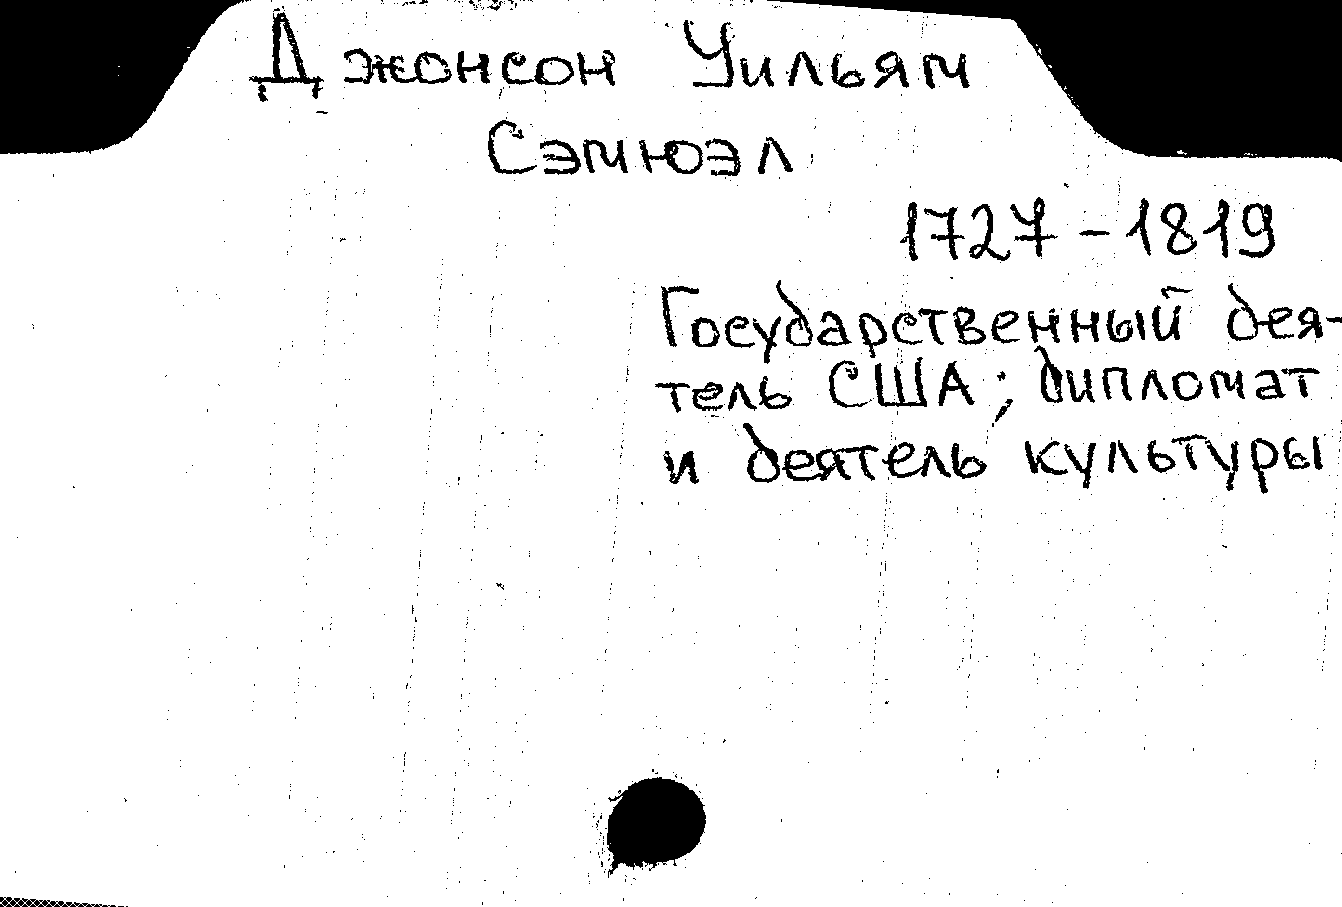 Джонсон Уильям
Сэмюэл
1727-1819
Государственный дея-
тель США; дипломат
и деятель культуры